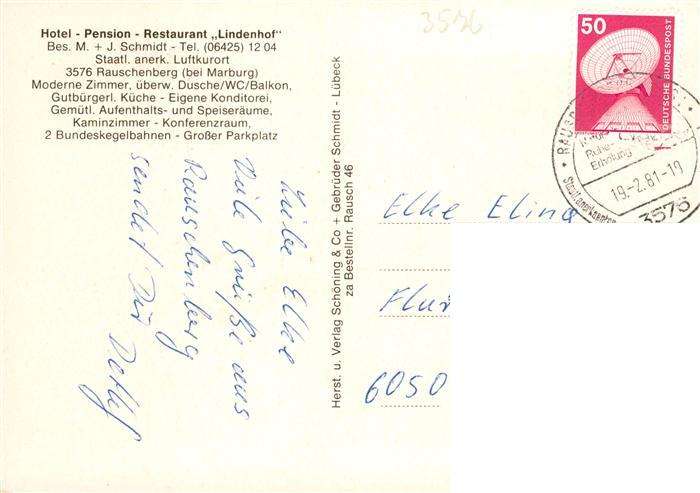 Hotel - Pension - Restaurant „Lindenhof"
Bes. M. + J. Schmidt - Tel. (06425) 12 04
Staatl. anerk. Luftkurort
3576 Rauschenberg (bei Marburg)
Moderne Zimmer, überw. Dusche/WC/Balkon,
Gutbürgerl. Küche - Eigene Konditorei,
Gemütl. Aufenthalts- und Speiseräume,
Kaminzimmer - Konferenzraum,
2 Bundeskegelbahnen - Großer Parkplatz
Liebe Elke
Viele Grüße aus
Rauschenberg
sendet Dir Detlef
Herst. u. Verlag Schöning & Co + Gebrüder Schmidt - Lübeck
za Bestellnr. Rausch 46
3576
50
DEUTSCHE BUNDESPOST
Ruhe
Erholung
19.-2.81-19
3576
Elke Elina
Flur
6050